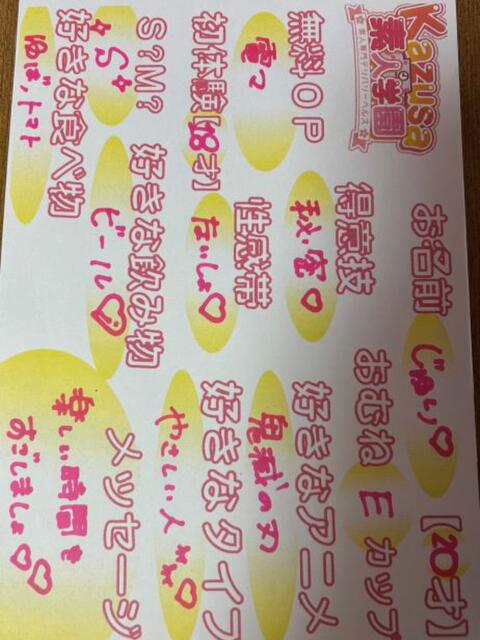 Kazusa
素人学園
お名前 じゅり♡ 【20才】
得意技 秘密♡
おむね E カップ
無料OP 電マ
初体験【18才】
性感帯 ないしょ♡
好きなアニメ 鬼滅の刃
S?M? S
好きな飲み物 ビール♡
好きなタイプ やさしい人
好きな食べ物 ゆば、トマト
メッセージ
楽しい時間を
すごしましょ♡♡